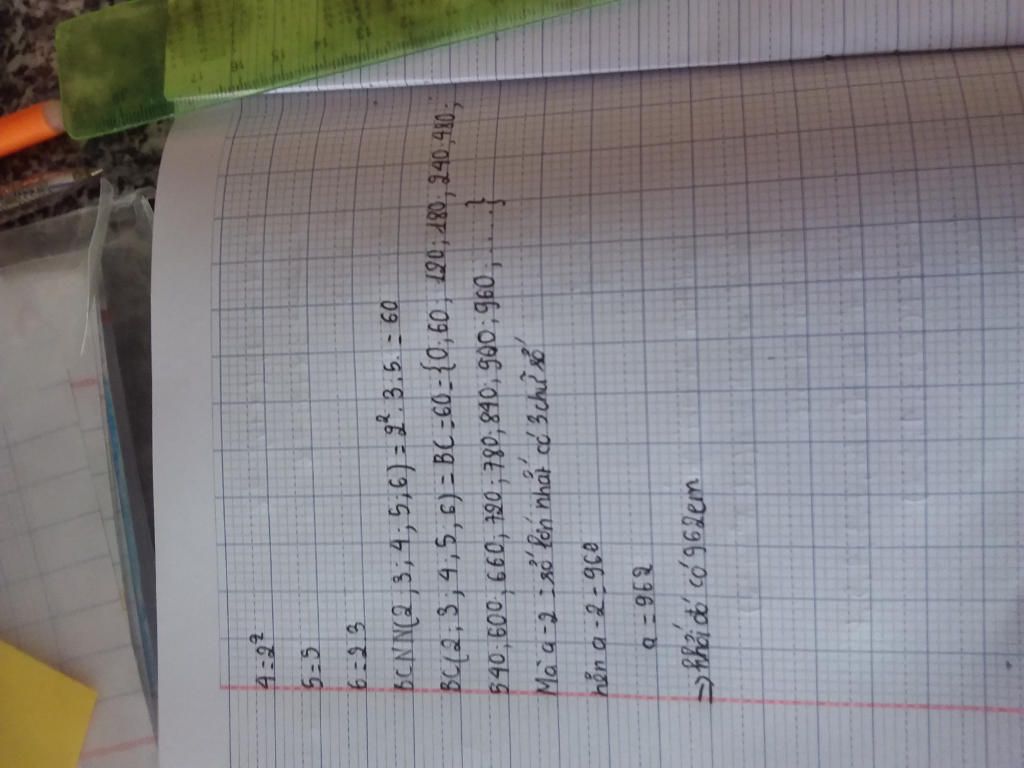 4 = 2²
5 = 5
6 = 2 3
BCNN(2; 3; 4; 5; 6) = 2². 3. 5. = 60
BC(2; 3; 4; 5; 6) = BC = 60 = {0; 60; 120; 180; 240; 480;
540; 600; 660; 720; 780; 840; 900; 960; ......}
Mà a - 2 = số lớn nhất có 3 chữ số
nên a - 2 = 960
a = 962
=> khối đó có 962 em
17 16 15 14 13